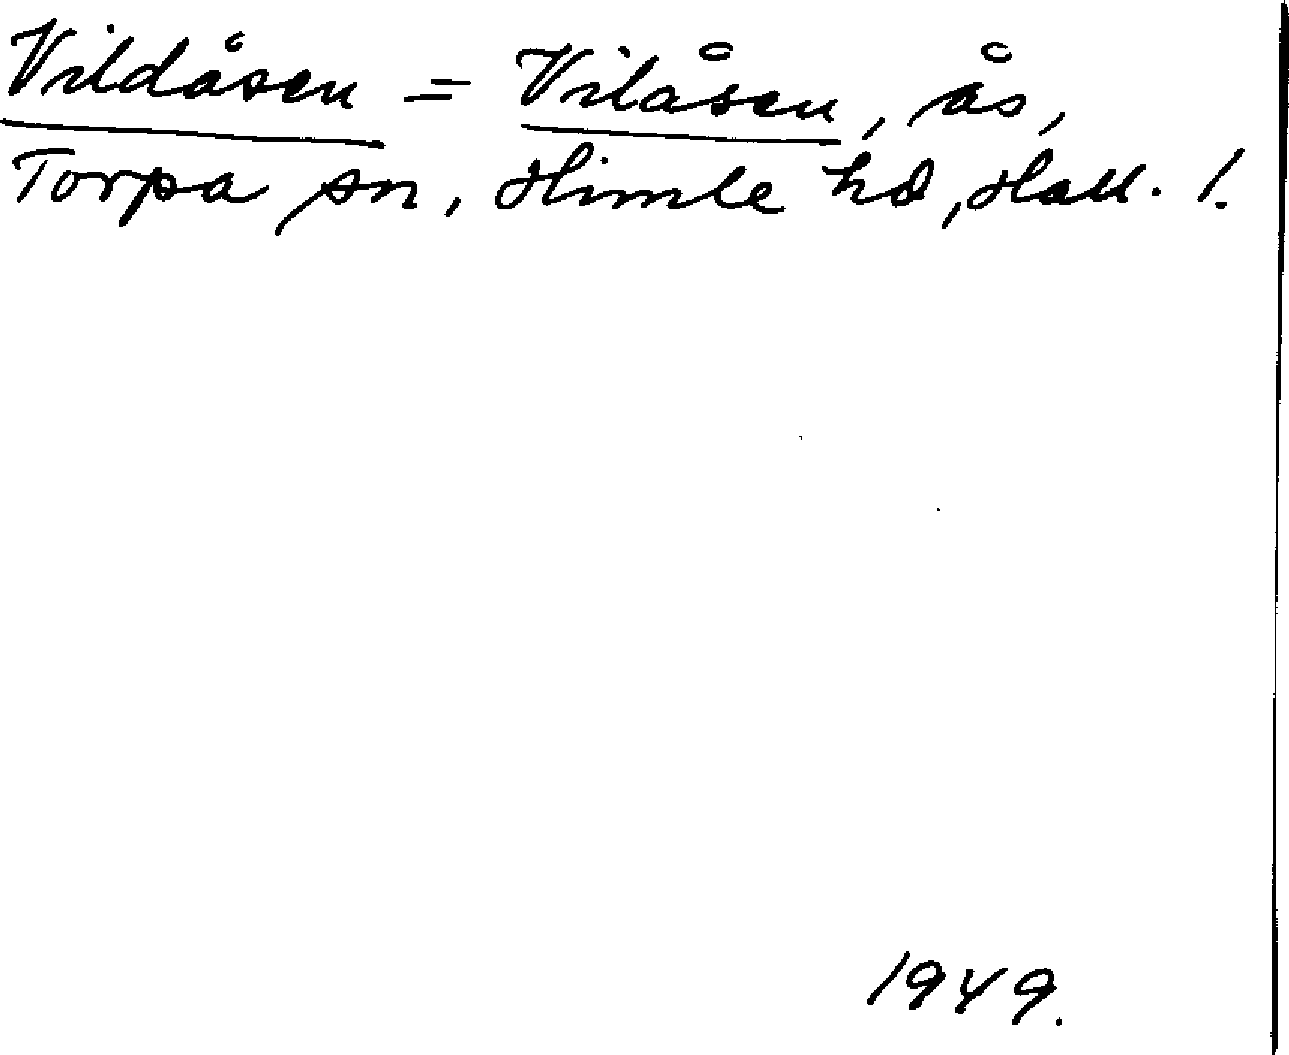 Vildåsen = Vilåsen, ås,
Torpa sn, Himle hd, Hall. l.
1949.